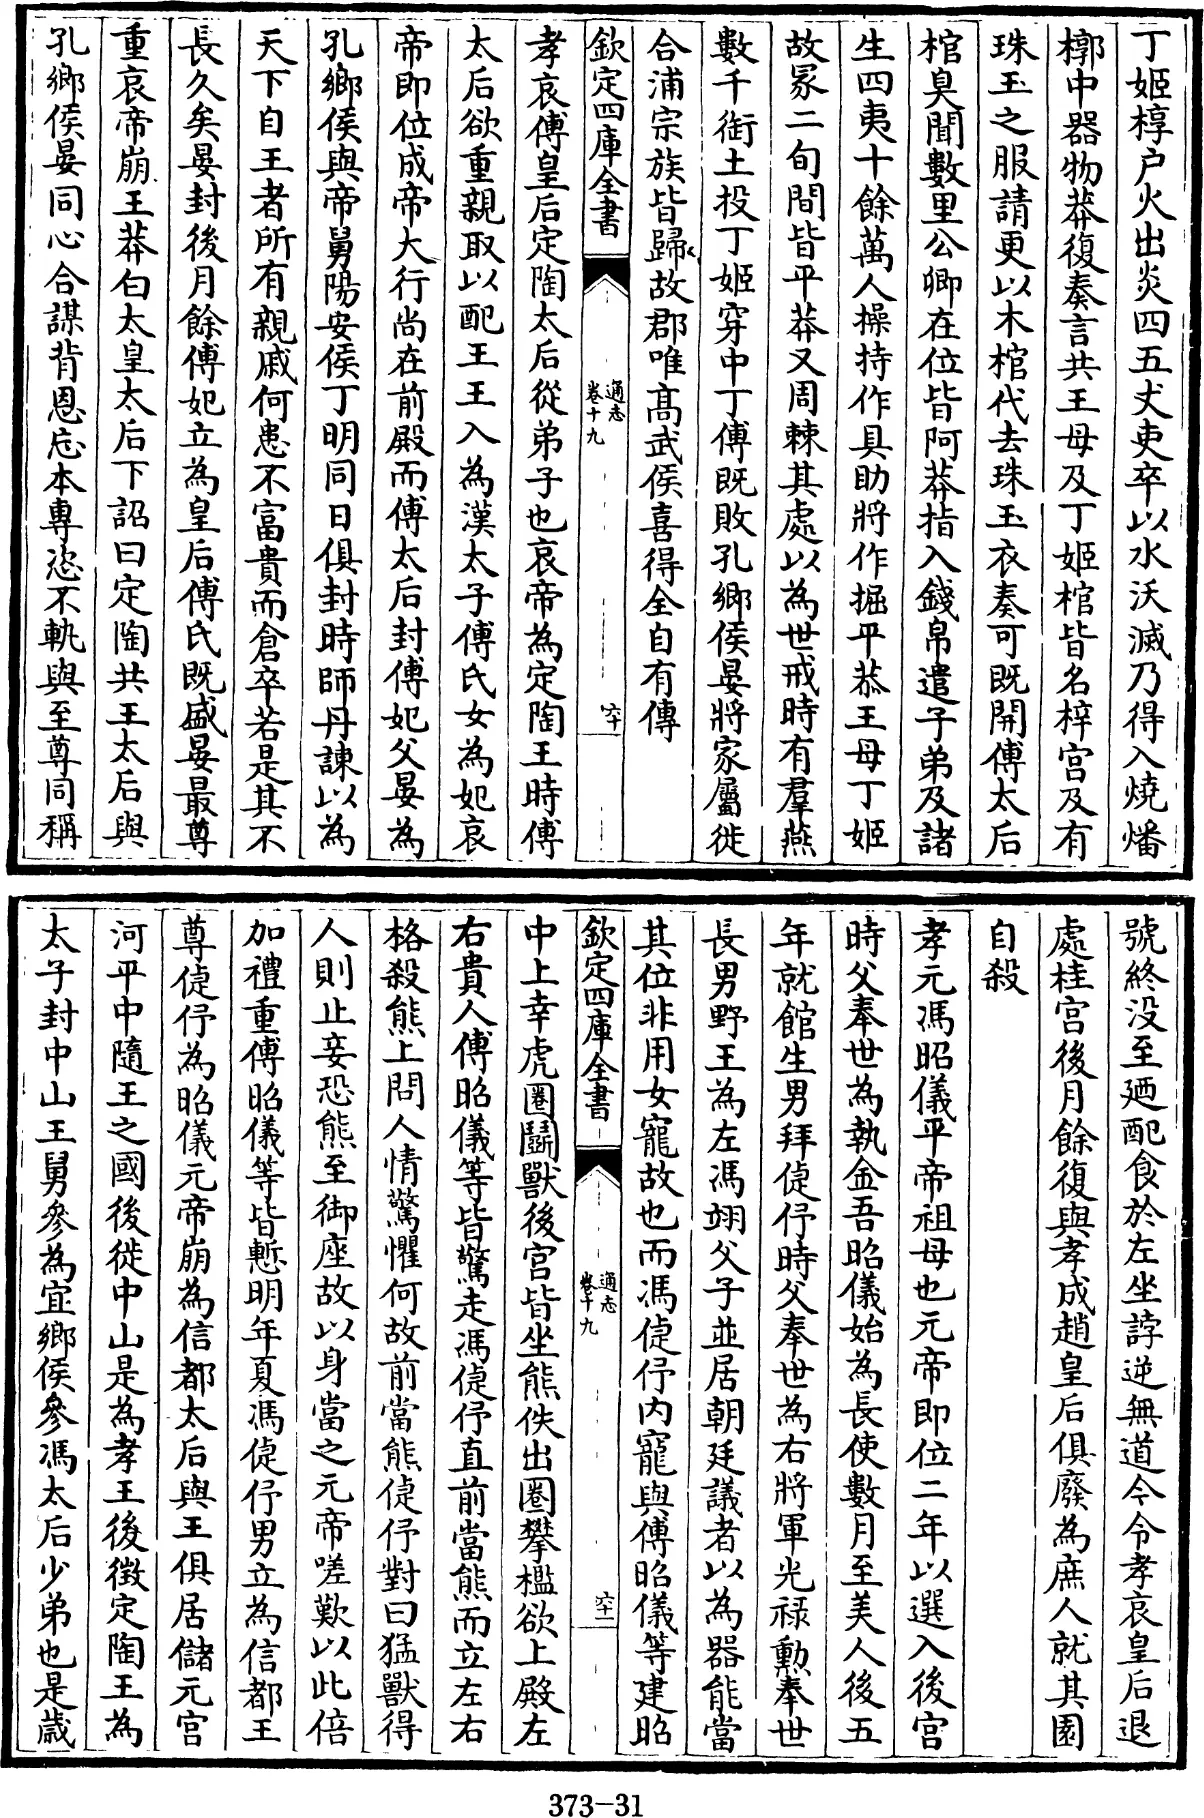 丁姬椁户火出炎四五丈吏卒以水沃滅乃得入燒燔
槨中器物莽復奏言共王母及丁姬棺皆名梓宫及有
珠玉之服請更以木棺代去珠玉衣奏可既開傅太后
棺臭聞數里公卿在位皆阿莽指入錢帛遣子弟及諸
生四夷十餘萬人操持作具助將作掘平恭王母丁姬
故冢二旬間皆平莽又周棘其處以為世戒時有羣燕
數千銜土投丁姬穿中丁傅既敗孔鄉侯晏將家屬徙
合浦宗族皆歸故郡唯髙武侯喜得全自有傳
欽定四庫全書
通志
卷十九
六十
孝哀傅皇后定陶太后從弟子也哀帝為定陶王時傅
太后欲重親取以配王王入為漢太子傅氏女為妃哀
帝即位成帝大行尚在前殿而傅太后封傅妃父晏為
孔鄉侯與帝舅陽安侯丁明同日俱封時師丹諫以為
天下自王者所有親戚何患不富貴而倉卒若是其不
長久矣晏封後月餘傅妃立為皇后傅氏既盛晏最尊
重哀帝崩王莽白太皇太后下詔曰定陶共王太后與
孔鄉侯晏同心合謀背恩忘本專恣不軌與至尊同稱
號終没至廼配食於左坐誖逆無道今令孝哀皇后退
處桂宫後月餘復與孝成趙皇后俱廢為庶人就其園
自殺
孝元馮昭儀平帝祖母也元帝即位二年以選入後宫
時父奉世為執金吾昭儀始為長使數月至美人後五
年就館生男拜倢伃時父奉世為右將軍光祿勲奉世
長男野王為左馮翊父子並居朝廷議者以為器能當
其位非用女寵故也而馮倢伃内寵與傅昭儀等建昭
欽定四庫全書
通志
卷十九
六十一
中上幸虎圈鬬獸後宫皆坐熊佚出圈攀檻欲上殿左
右貴人傅昭儀等皆驚走馮倢伃直前當熊而立左右
格殺熊上問人情驚懼何故前當熊倢伃對曰猛獸得
人則止妾恐熊至御座故以身當之元帝嗟歎以此倍
加禮重傅昭儀等皆慙明年夏馮倢伃男立為信都王
尊倢伃為昭儀元帝崩為信都太后與王俱居儲元宫
河平中隨王之國後徙中山是為孝王後徵定陶王為
太子封中山王舅參為宜鄉侯參馮太后少弟也是歲
373-31